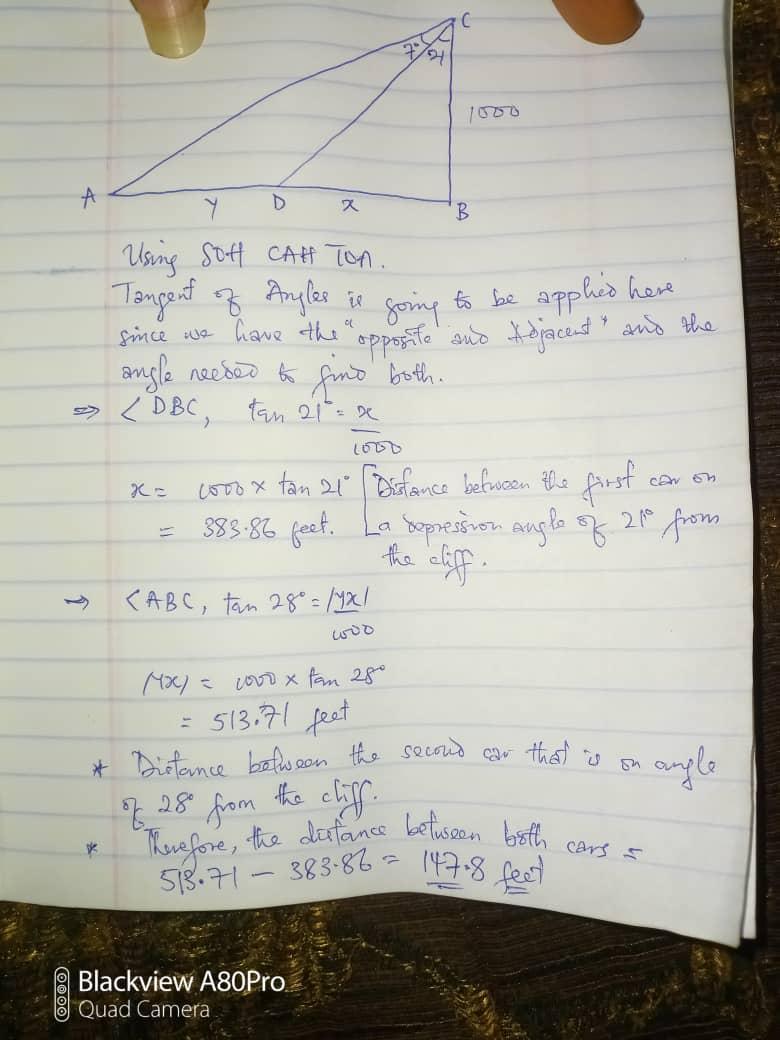 C
7° 21
1000
A Y D x B
Using SOH CAH TOA.
Tangent of Angles is going to be applied here
since we have the "opposite and Adjacent" and the
angle needed to find both.
⇒ < DBC, tan 21° = x
1000
x = 1000 x tan 21° [Distance between the first car on
= 383.86 feet. a depression angle of 21° from
the cliff.
→ <ABC, tan 28° = |yx|
1000
|yx| = 1000 x tan 28°
= 513.71 feet
* Distance between the second car that is on angle
of 28° from the cliff.
* Therefore, the distance between both cars =
513.71 - 383.86 = 147.8 feet
Blackview A80Pro
Quad Camera